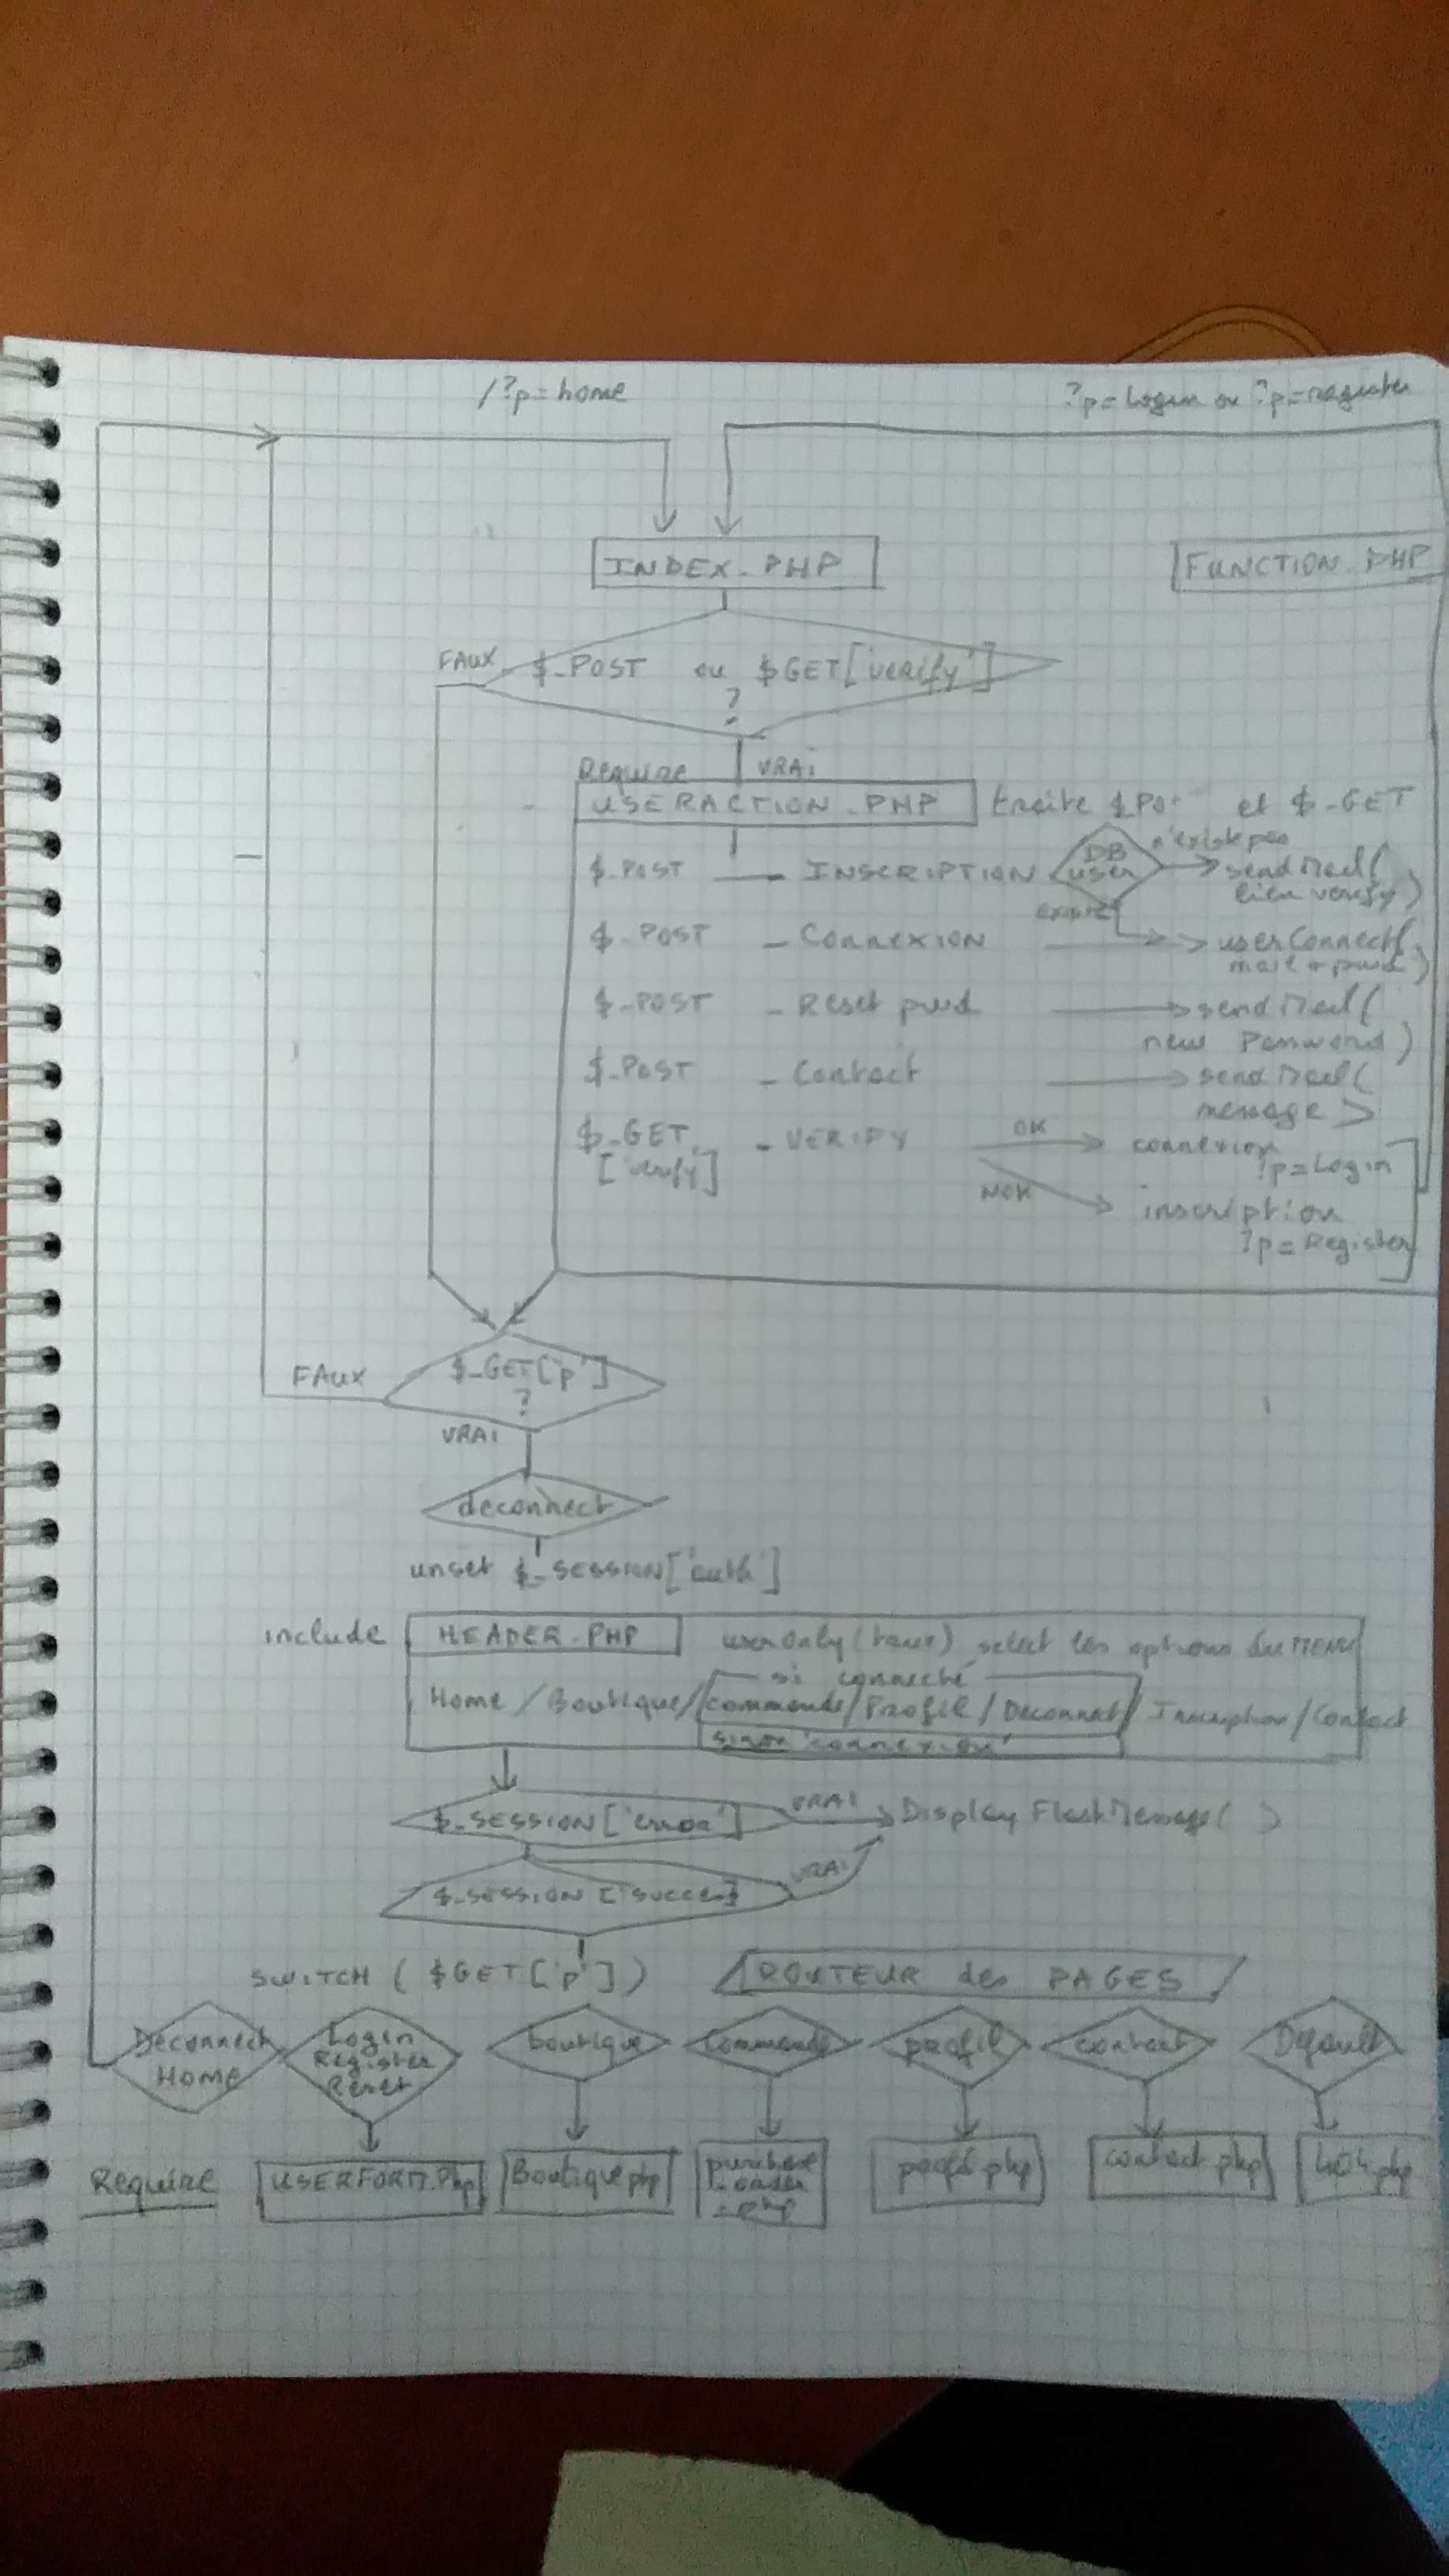 /?p=home
?p=Login ou ?p=register
INDEX.PHP
FUNCTION.PHP
FAUX
$_POST ou $GET['verify']
?
Require VRAI
USERACTION.PHP traite $Po et $_GET
$_POST — INSCRIPTION DB user n'existe pas sendMail(
lien verify)
existe
$_POST - Connexion userConnect(
mail + pwd)
$_POST - Reset pwd sendMail(
new Password)
$_POST - Contact sendMail(
message >
$_GET - VERIFY OK connexion
['verify'] ?p=Login
NOK inscription
?p=Register
$_GET['p']
FAUX ?
VRAI
deconnect
unset $_SESSION['auth']
include HEADER.PHP userOnly( ) select les options du MENU
si connecté
Home / Boutique / commande / Profil / Deconnect / Inscription / Contact
sinon 'connexion'
$_SESSION['error'] VRAI Display FlashMessage( )
$_SESSION['succes'] VRAI
SWITCH ($GET['p']) ROUTEUR des PAGES
Deconnect
HOME
Login
Register
Reset
boutique
Commande
profil
contact
Default
Require
USERFORM.Php
Boutique.php
purchase
_order
.php
profil.php
contact.php
404.php